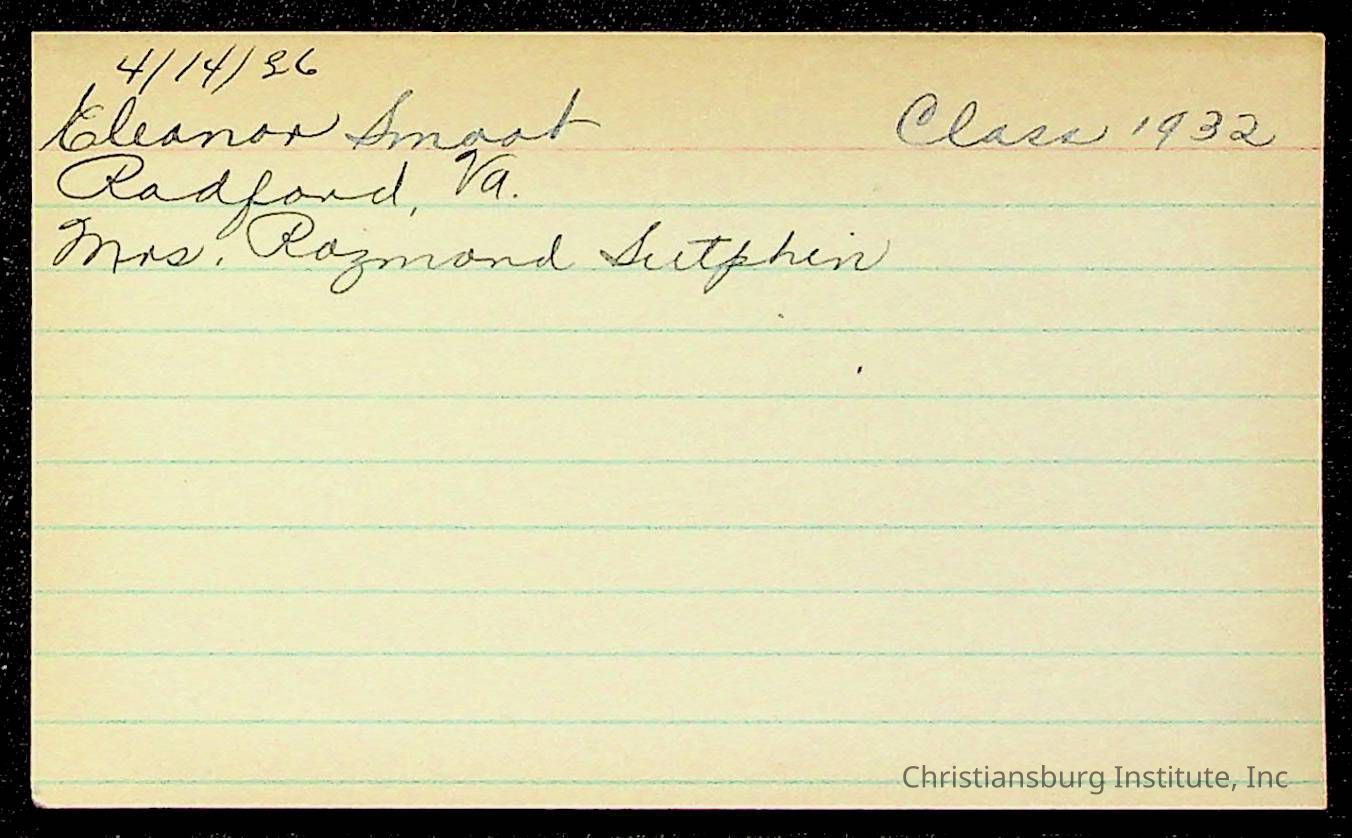 4/14/36
Eleanor Smoot Class 1932
Radford, Va.
Mrs. Rozmond Sutphin
Christiansburg Institute, Inc